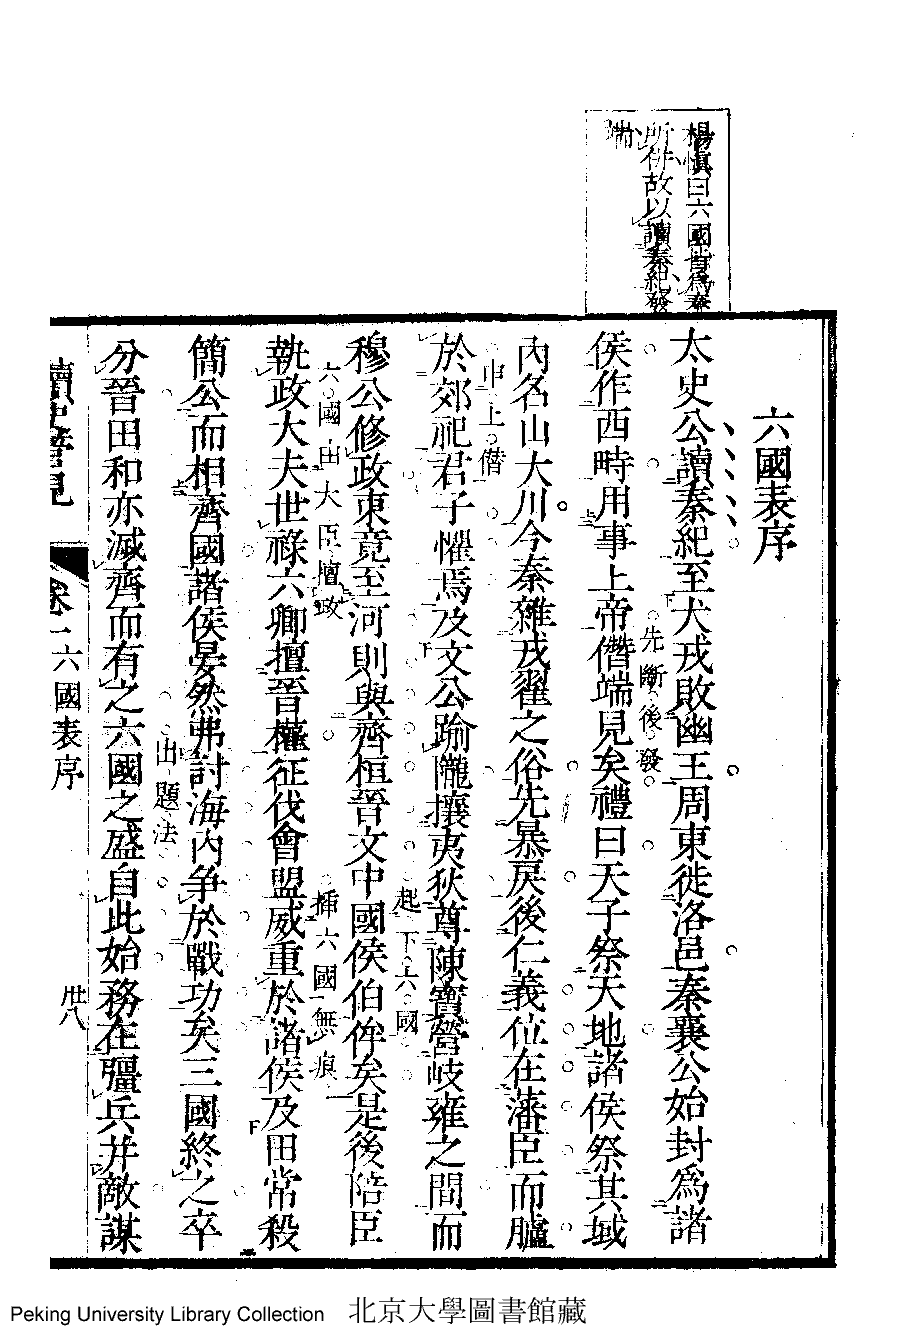 楊慎曰六國皆爲秦
所併故以讀秦紀發
端
六國表序
太史公讀秦紀至犬戎敗幽王周東徙洛邑秦襄公始封爲諸
先斷後發
侯作西畤用事上帝僭端見矣禮曰天子祭天地諸侯祭其域
內名山大川今秦雜戎翟之俗先暴戾後仁義位在藩臣而臚
申上僭
於郊祀君子懼焉及文公踰隴攘夷狄尊陳寶營岐雍之間而
起下六國
穆公修政東竟至河則與齊桓晉文中國侯伯侔矣是後陪臣
六國由大臣擅政
插六國無痕
執政大夫世祿六卿擅晉權征伐會盟威重於諸侯及田常殺
簡公而相齊國諸侯晏然弗討海內争於戰功矣三國終之卒
出題法
分晉田和亦滅齊而有之六國之盛自此始務在彊兵并敵謀
讀史管見
卷一
六國表序
卅八
Peking University Library Collection 北京大學圖書館藏